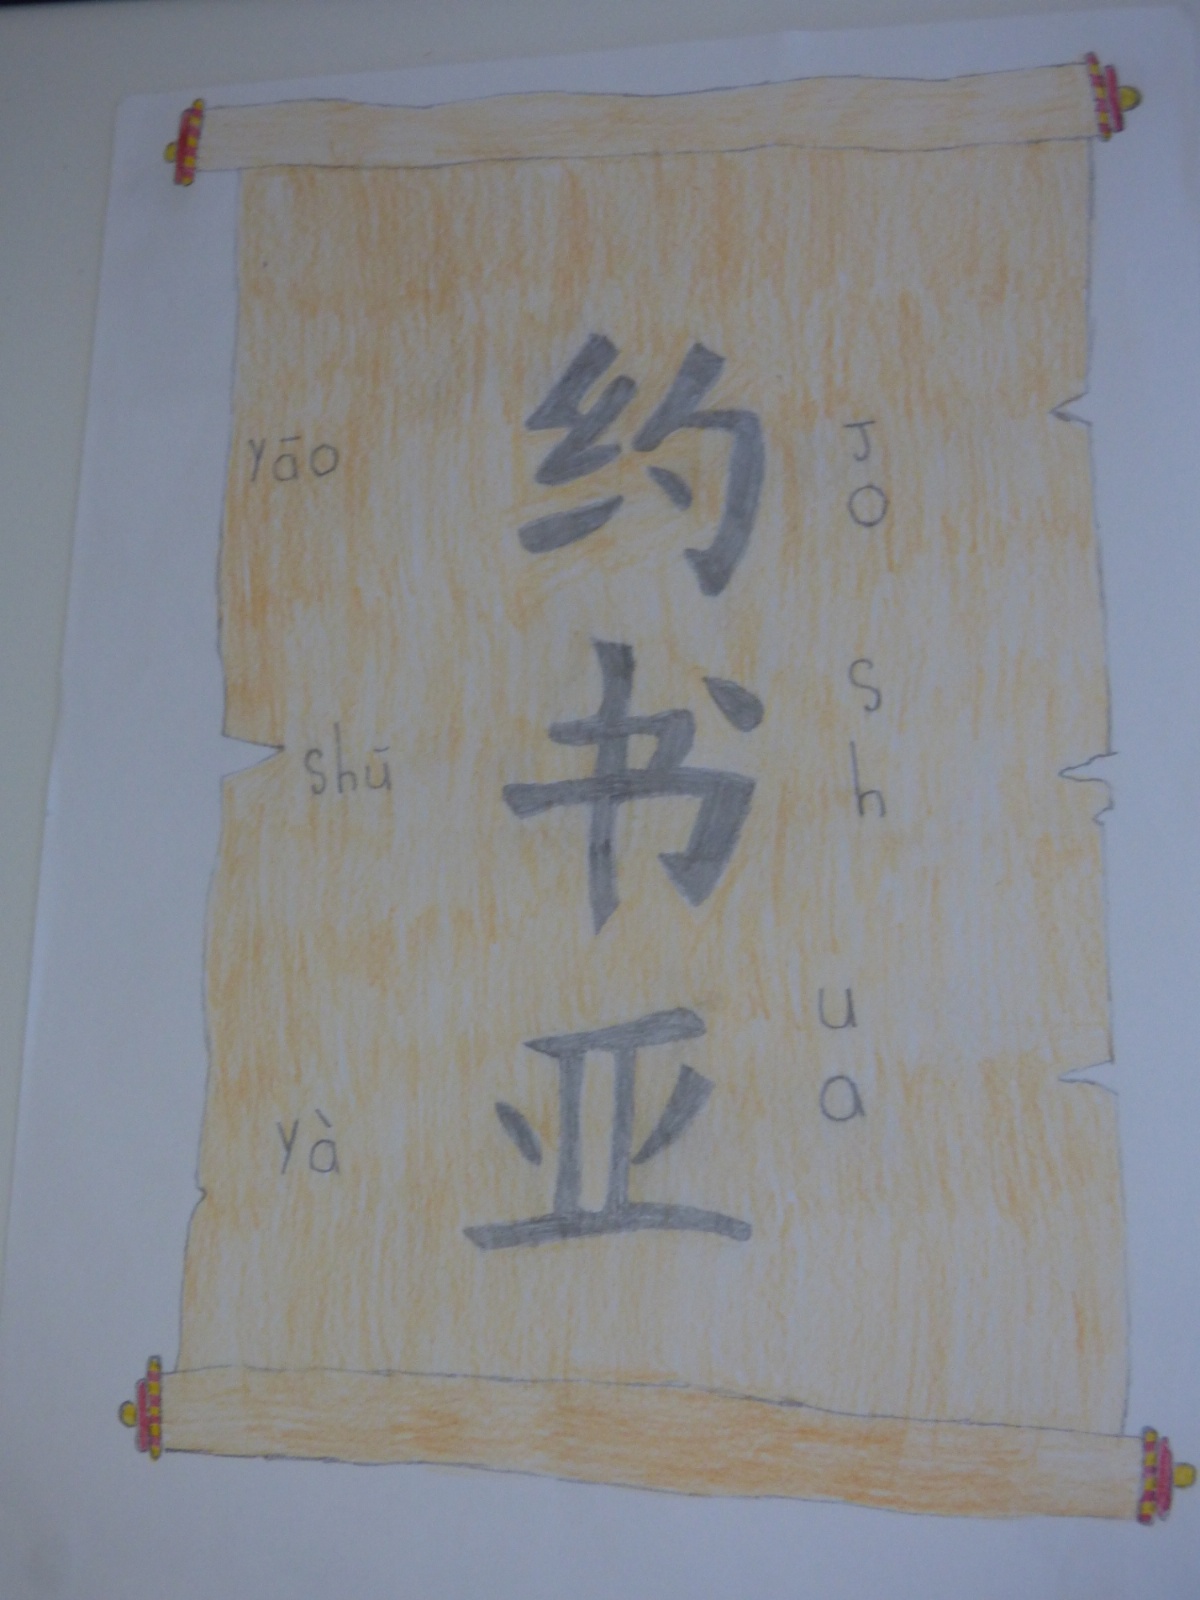 yāo 约 Jo
shū 书 sh
yà 亚 ua